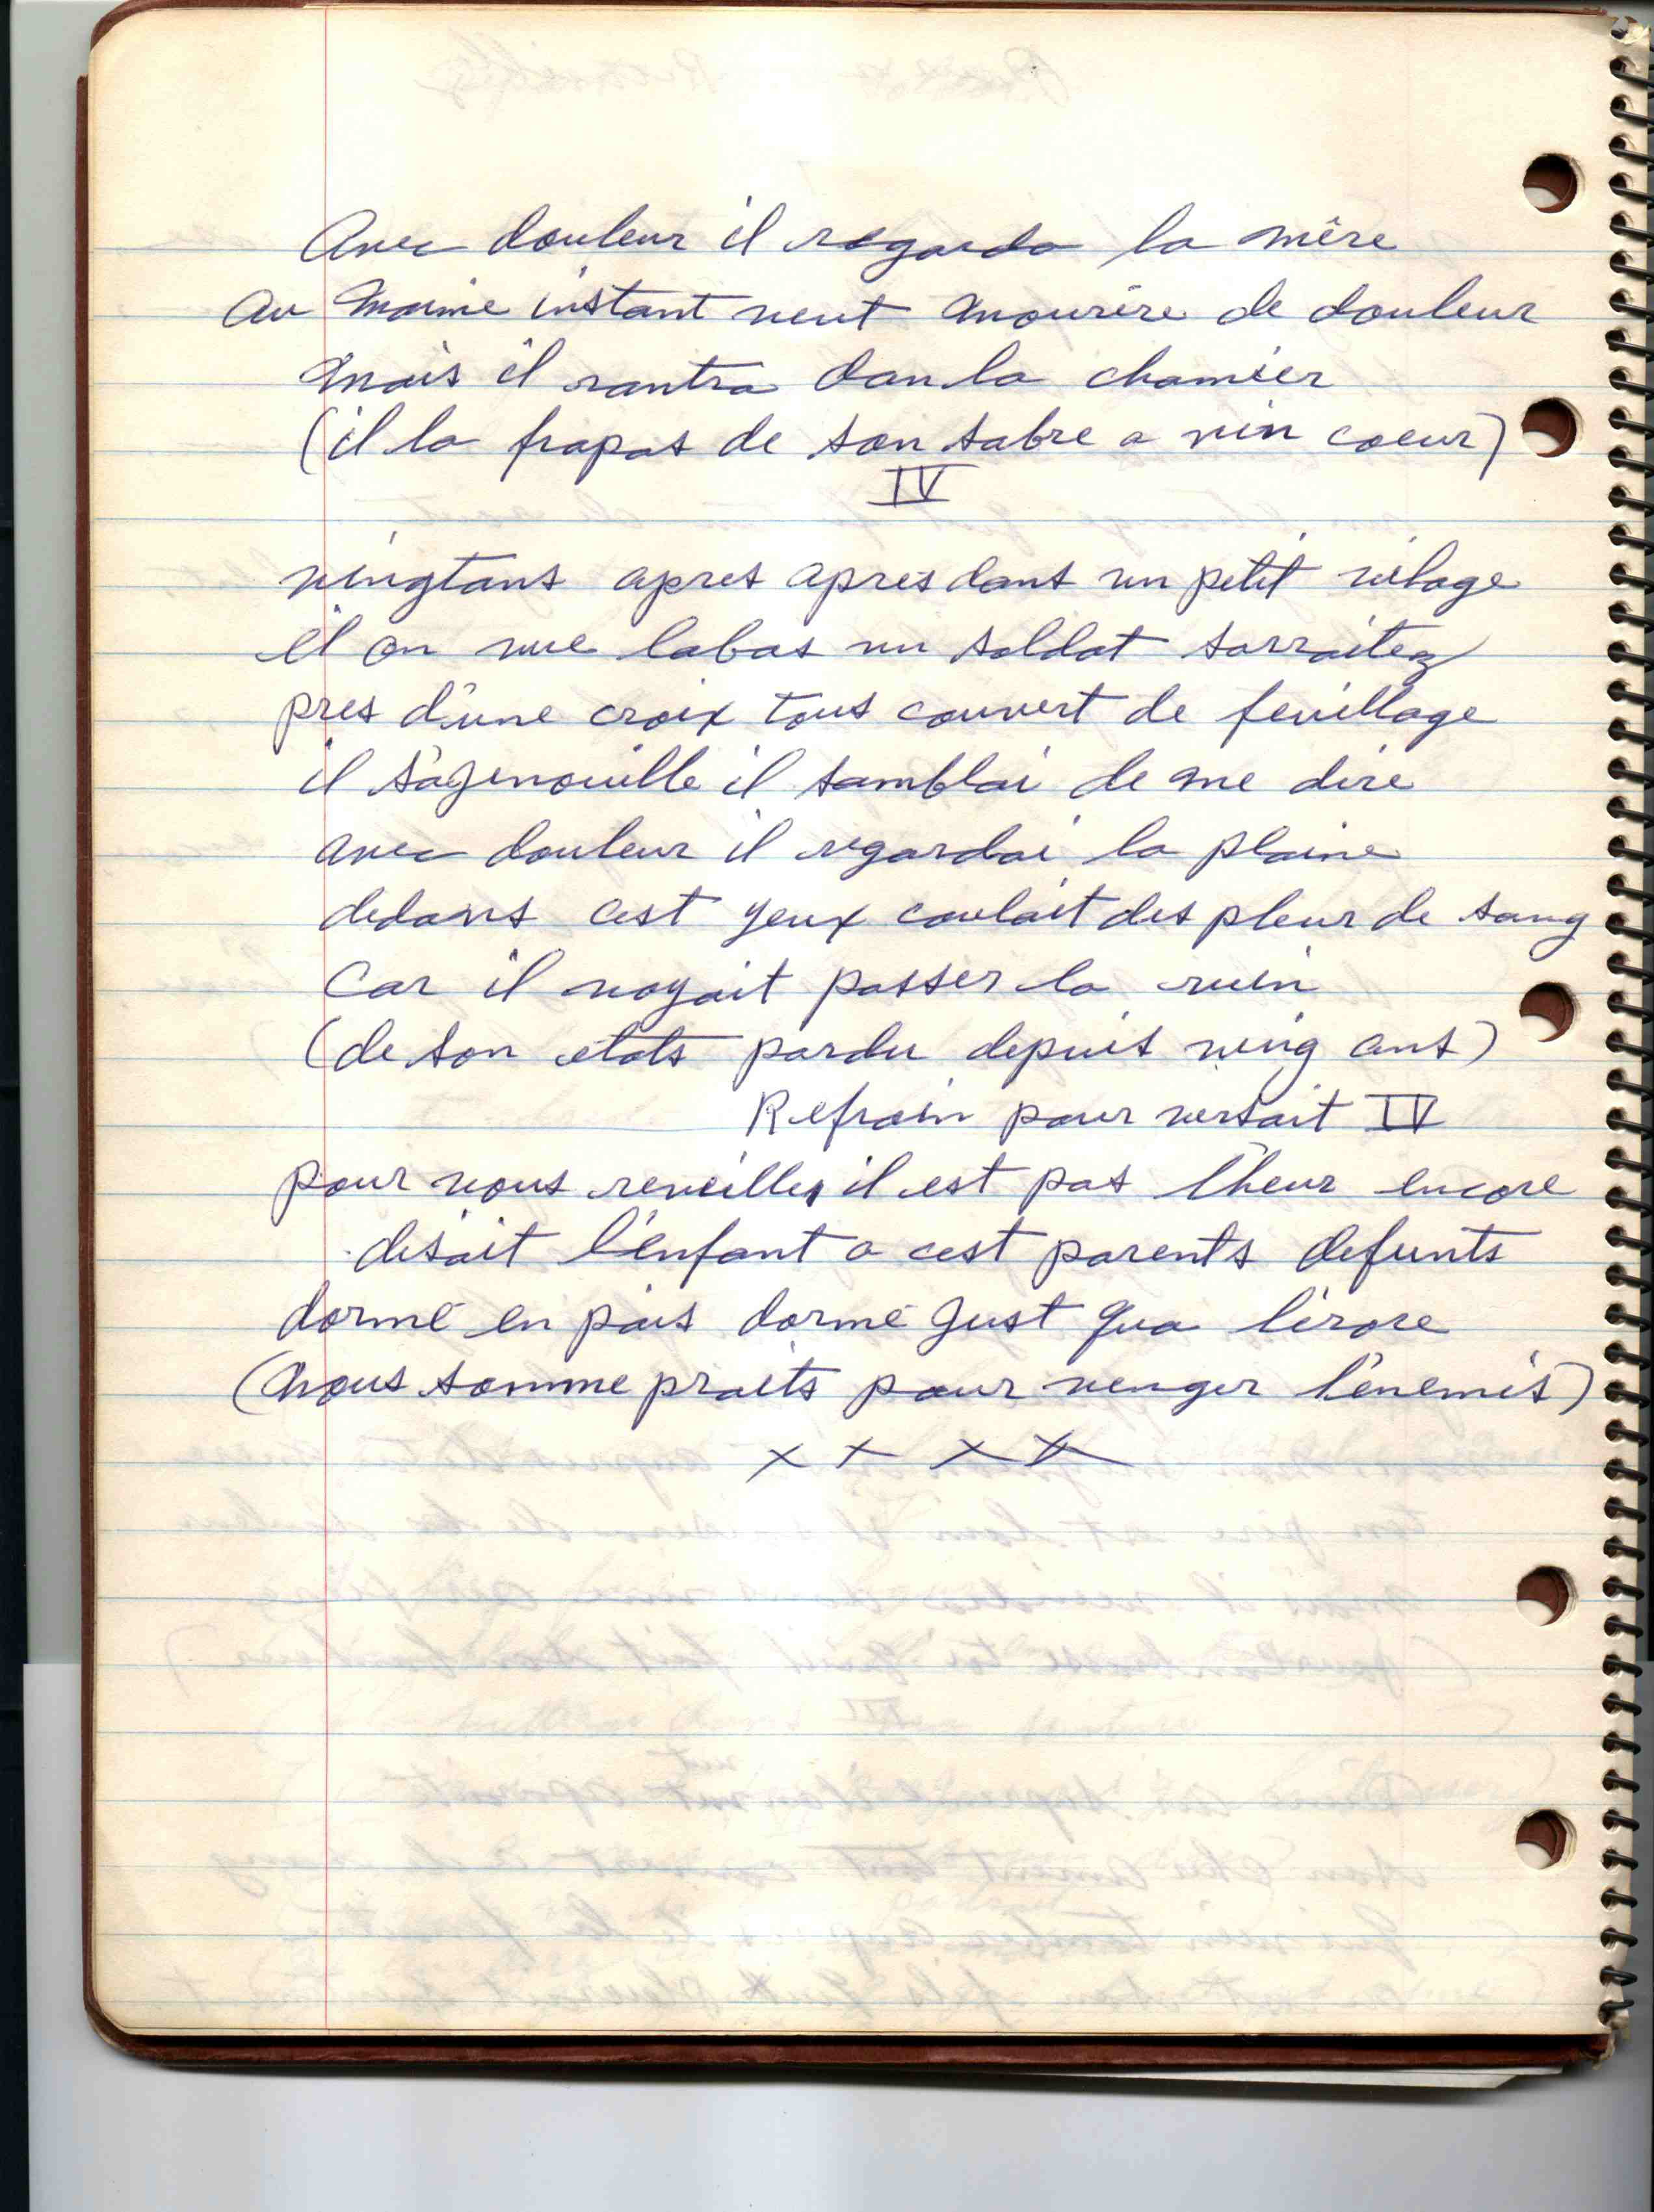 Avec douleur il regarda la mêre
Au maime instant veut mourire de douleur
mais il rantra dan la chamier
(il la frapas de son sabre a vin coeur)
IV
vingtans apres apres dans un petit vilage
et on vue labas un soldat sarraitez
pres d'une croix tous couvert de feuillage
il s'agenouille il samblai de me dire
avec douleur il regardai la plaine
dedans cest yeux coulait des pleur de sang
Car il voyait passer la ruin
(de son etats pardu depuis ving ans)
Refrain pour versait IV
pour vous reveilles il est pas l'heur encore
disait l'enfant a cest parents defunts
dormé en pais dormé just qua l'erore
(nous somme praits pour venger l'enemis)
x x x x